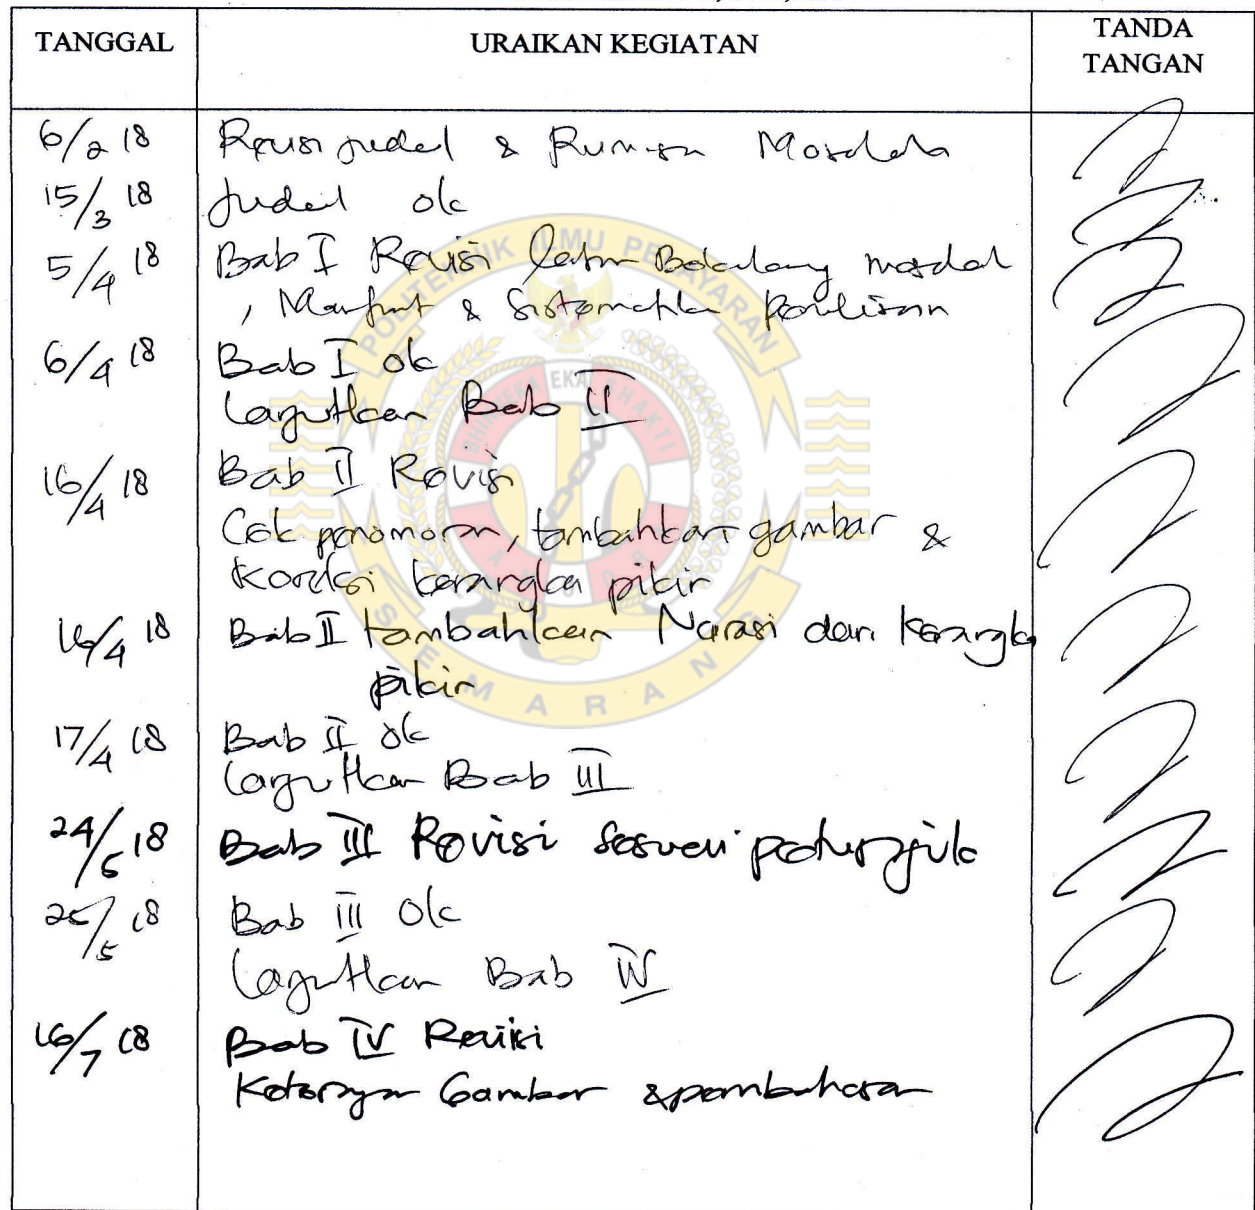 TANGGAL URAIKAN KEGIATAN TANDA TANGAN
6/2 18 Revisi judul & Rumusan Masalah
15/3 18 Judul ok
5/4 18 Bab I Revisi latar Belakang masalah
, Manfaat & Sistematika penulisan
6/4 18 Bab I ok
Lanjutkan Bab II
16/4 18 Bab II Revisi
Cek penomoran, tambahkan gambar &
Koreksi kerangka pikir
16/4 18 Bab II tambahkan Narasi dari kerangka
pikir
17/4 18 Bab II ok
Lanjutkan Bab III
24/5 18 Bab III Revisi sesuai petunjuk
25/5 18 Bab III Ok
Lanjutkan Bab IV
16/7 18 Bab IV Revisi
Keterangan Gambar & pembahasan
POLITEKNIK ILMU PELAYARAN
SEMARANG